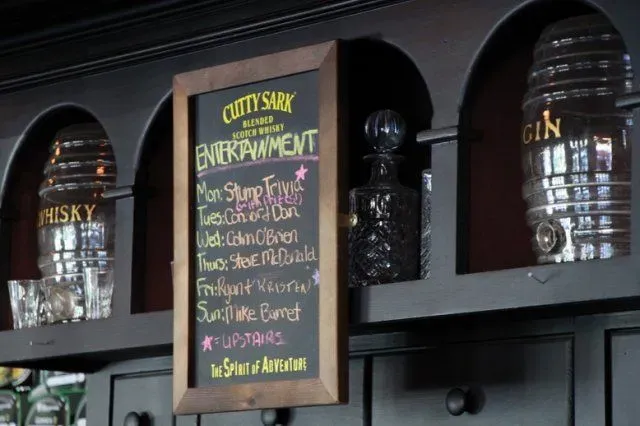 CUTTY SARK
BLENDED
SCOTCH WHISKY
ENTERTAINMENT
Mon: Stump Trivia
Tues: Conor Dan
Wed: Colin O'Brien
Thurs: Steve McDonald
Fri: Ryan + KRISTEN
Sun: Mike Barnet
= UPSTAIRS
THE SPIRIT OF ADVENTURE
WHISKY
GIN